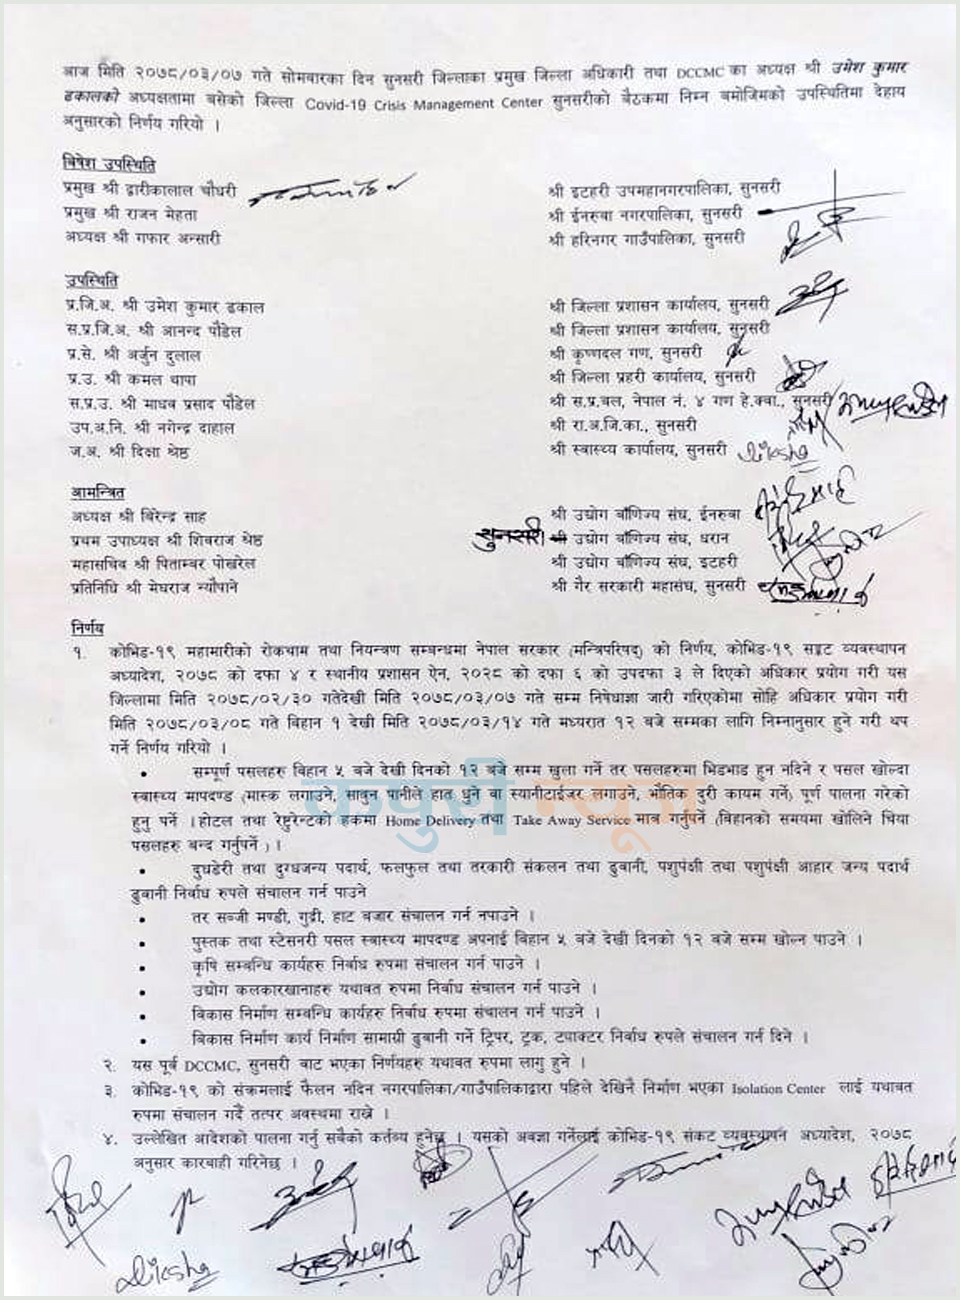 आज मिति २०७८/०३/०७ गते सोमबारका दिन सुनसरी जिल्लाका प्रमुख जिल्ला अधिकारी तथा DCCMC का अध्यक्ष श्री उमेश कुमार
ढकालको अध्यक्षतामा बसेको जिल्ला Covid-19 Crisis Management Center सुनसरीको बैठकमा निम्न बमोजिमको उपस्थितिमा देहाय
अनुसारको निर्णय गरियो ।
बिषेश उपस्थिति
प्रमुख श्री द्वारीकालाल चौधरी श्री इटहरी उपमहानगरपालिका, सुनसरी
प्रमुख श्री राजन मेहता श्री ईनरुवा नगरपालिका, सुनसरी
अध्यक्ष श्री गफार अन्सारी श्री हरिनगर गाउँपालिका, सुनसरी
उपस्थिति
प्र.जि.अ. श्री उमेश कुमार ढकाल श्री जिल्ला प्रशासन कार्यालय, सुनसरी
स.प्र.जि.अ. श्री आनन्द पौडेल श्री जिल्ला प्रशासन कार्यालय, सुनसरी
प्र.से. श्री अर्जुन दुलाल श्री कृष्णदल गण, सुनसरी
प्र.उ. श्री कमल थापा श्री जिल्ला प्रहरी कार्यालय, सुनसरी
स.प्र.उ. श्री माधव प्रसाद पौडेल श्री स.प्र.बल, नेपाल नं. ४ गण हे.क्वा., सुनसरी
उप.अ.नि. श्री नगेन्द्र दाहाल श्री रा.अ.जि.का., सुनसरी
ज.अ. श्री दिक्षा श्रेष्ठ श्री स्वास्थ्य कार्यालय, सुनसरी Diksha
आमन्त्रित
अध्यक्ष श्री बिरेन्द्र साह श्री उद्योग बाँणिज्य संघ, ईनरुवा
प्रथम उपाध्यक्ष श्री शिवराज श्रेष्ठ सुनसरी श्री उद्योग बाँणिज्य संघ, धरान
महासचिव श्री पिताम्बर पोखरेल श्री उद्योग बाँणिज्य संघ, इटहरी
प्रतिनिधि श्री मेघराज न्यौपाने श्री गैर सरकारी महासंघ, सुनसरी
निर्णय
१. कोभिड-१९ महामारीको रोकथाम तथा नियन्त्रण सम्बन्धमा नेपाल सरकार (मन्त्रिपरिषद्) को निर्णय, कोभिड-१९ सङ्कट व्यवस्थापन
अध्यादेश, २०७८ को दफा ४ र स्थानीय प्रशासन ऐन, २०२८ को दफा ६ को उपदफा ३ ले दिएको अधिकार प्रयोग गरी यस
जिल्लामा मिति २०७८/०२/३० गतेदेखी मिति २०७८/०३/०७ गते सम्म निषेधाज्ञा जारी गरिएकोमा सोहि अधिकार प्रयोग गरी
मिति २०७८/०३/०८ गते विहान १ देखी मिति २०७८/०३/१४ गते मध्यरात १२ बजे सम्मका लागि निम्नानुसार हुने गरी थप
गर्ने निर्णय गरियो ।
• सम्पूर्ण पसलहरु बिहान ५ बजे देखी दिनको १२ बजे सम्म खुला गर्ने तर पसलहरुमा भिडभाड हुन नदिने र पसल खोल्दा
स्वास्थ्य मापदण्ड (मास्क लगाउने, साबुन पानीले हात धुने वा स्यानीटाईजर लगाउने, भौतिक दुरी कायम गर्ने) पूर्ण पालना गरेको
हुनु पर्ने ।होटल तथा रेष्टुरेन्टको हकमा Home Delivery तथा Take Away Service मात्र गर्नुपर्ने (विहानको समयमा खोलिने चिया
पसलहरु बन्द गर्नुपर्ने ) ।
• दुधडेरी तथा दुग्धजन्य पदार्थ, फलफुल तथा तरकारी संकलन तथा ढुवानी, पशुपंक्षी तथा पशुपंक्षी आहार जन्य पदार्थ
ढुवानी निर्वाध रुपले संचालन गर्न पाउने
• तर सब्जी मण्डी, गुद्री, हाट बजार संचालन गर्न नपाउने ।
• पुस्तक तथा स्टेसनरी पसल स्वास्थ्य मापदण्ड अपनाई बिहान ५ बजे देखी दिनको १२ बजे सम्म खोल्न पाउने ।
• कृषि सम्बन्धि कार्यहरु निर्वाध रुपमा संचालन गर्न पाउने ।
• उद्योग कलकारखानाहरु यथाबत रुपमा निर्वाध संचालन गर्न पाउने ।
• विकास निर्माण सम्बन्धि कार्यहरु निर्वाध रुपमा संचालन गर्न पाउने ।
• बिकास निर्माण कार्य निर्माण सामाग्री ढुवानी गर्ने ट्रिपर, ट्रक, ट्याक्टर निर्वाध रुपले संचालन गर्न दिने ।
२. यस पूर्व DCCMC, सुनसरी बाट भएका निर्णयहरु यथाबत रुपमा लागु हुने ।
३. कोभिड-१९ को संक्रमलाई फैलन नदिन नगरपालिका/गाउँपालिकाद्वारा पहिले देखिनै निर्माण भएका Isolation Center लाई यथाबत
रुपमा संचालन गर्दै तत्पर अवस्थमा राख्ने ।
४. उल्लेखित आदेशको पालना गर्नु सबैको कर्तव्य हुनेछ । यसको अवज्ञा गर्नेलाई कोभिड-१९ संकट व्यवस्थापन अध्यादेश, २०७८
अनुसार कारबाही गरिनेछ ।
Diksha